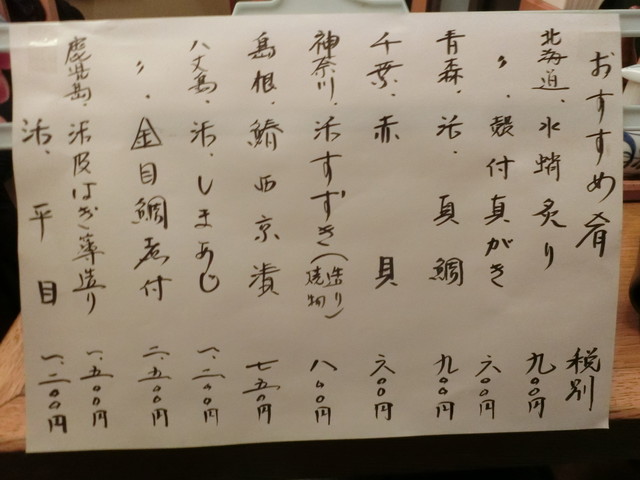 おすすめ肴 税別
北海道、水蛸炙り 九〇〇円
〃、殻付真がき 六〇〇円
青森、活、真鯛 九〇〇円
千葉、赤貝 六〇〇円
神奈川、活すずき(造り 焼物) 八〇〇円
島根、鰆西京漬 七五〇円
八丈島、活、しまあじ 一、二〇〇円
〃、金目鯛煮付 二、五〇〇円
鹿児島、活皮はぎ薄造り 一、五〇〇円
活、平目 一、二〇〇円